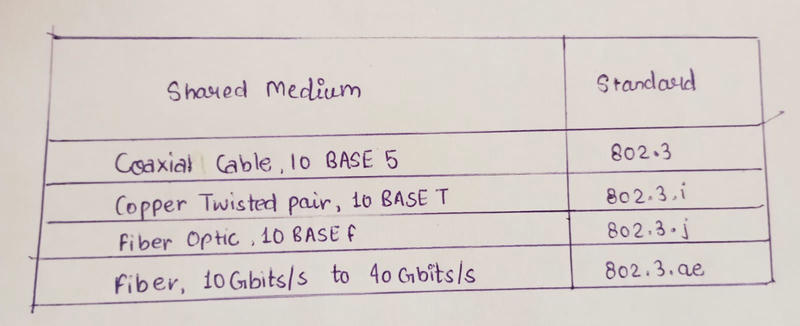 Shared Medium Standard
Coaxial Cable, 10 BASE 5 802.3
Copper Twisted pair, 10 BASE T 802.3.i
Fiber Optic, 10 BASE f 802.3.j
Fiber, 10Gbits/s to 40Gbits/s 802.3.ae